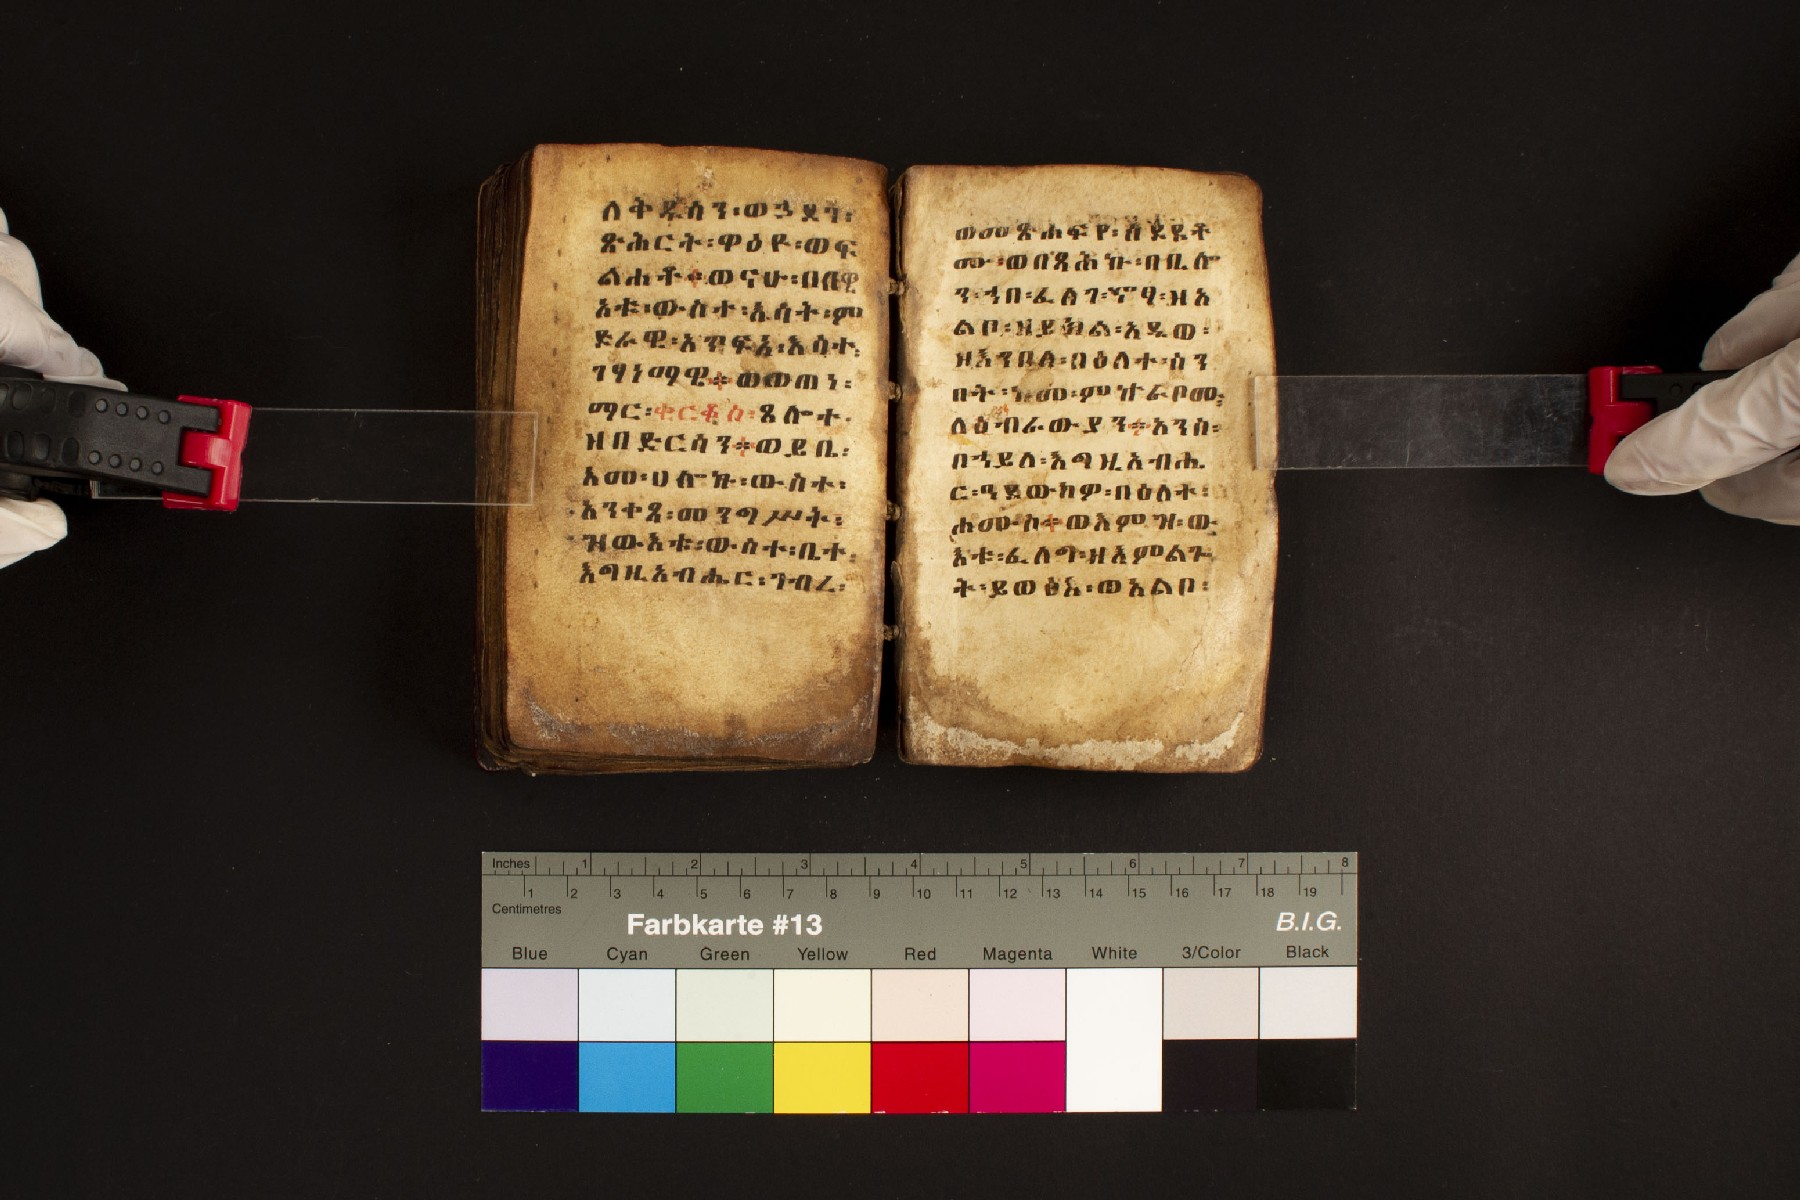 ለቅዱሳን፡ወኃጾን፡
ጽሕርት፡ዋዕዮ፡ወፍ
ልሐቶ፡ወናሁ፡በጊዊ
አቱ፡ውስተ፡እሳት፡ም
ድራዊ፡አጥፍአ፡እሳተ፡
ገሃነማዊ፡ወመጠነ፡
ማር፡ቂርቆስ፡ጼሎተ፡
ዘበድርሳን፡ወይቤ፡
አመ፡ሀሎኩ፡ውስተ፡
አንተጺ፡መንግሥት፡
ዝውእቱ፡ውስተ፡ቤተ፡
እግዚአብሔር፡ገብረ፡
ወመጽሐፍየ፡
ሙ፡ወበጻሕኩ፡በቢሎ
ን፡ኀበ፡ፈለገ፡ኖኃ፡ዘአ
ልቦ፡ዘይክል፡አዲወ፡
ዘእንበለ፡በዕለተ፡ሰን
በት፡ጊዜ፡ምዝራቦመ፡
ለዕብራውያን፡አንስ፡
በኀይለ፡እግዚአብሔ
ር፡ዓደውክዎ፡በዕለት፡
ሐሙስ፡ወእምዝ፡ው
እቱ፡ፈለግ፡ዘእምልጉ
ት፡ይወፅእ፡ወአልቦ፡
Inches 1 2 3 4 5 6 7 8
1 2 3 4 5 6 7 8 9 10 11 12 13 14 15 16 17 18 19
Centimetres
Farbkarte #13 B.I.G.
Blue Cyan Green Yellow Red Magenta White 3/Color Black